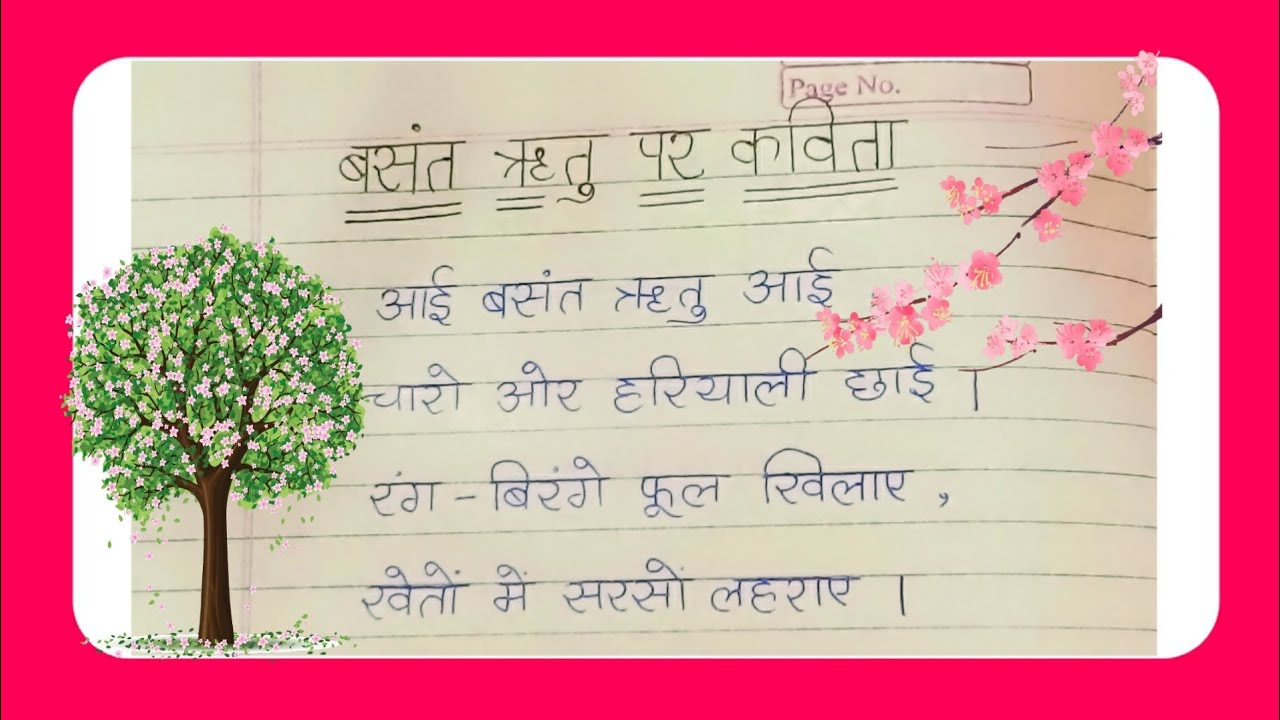 Page No.
बसंत ऋतु पर कविता
आई बसंत ऋतु आई
चारो ओर हरियाली छाई ।
रंग - बिरंगे फूल खिलाए ,
खेतों में सरसों लहराए ।